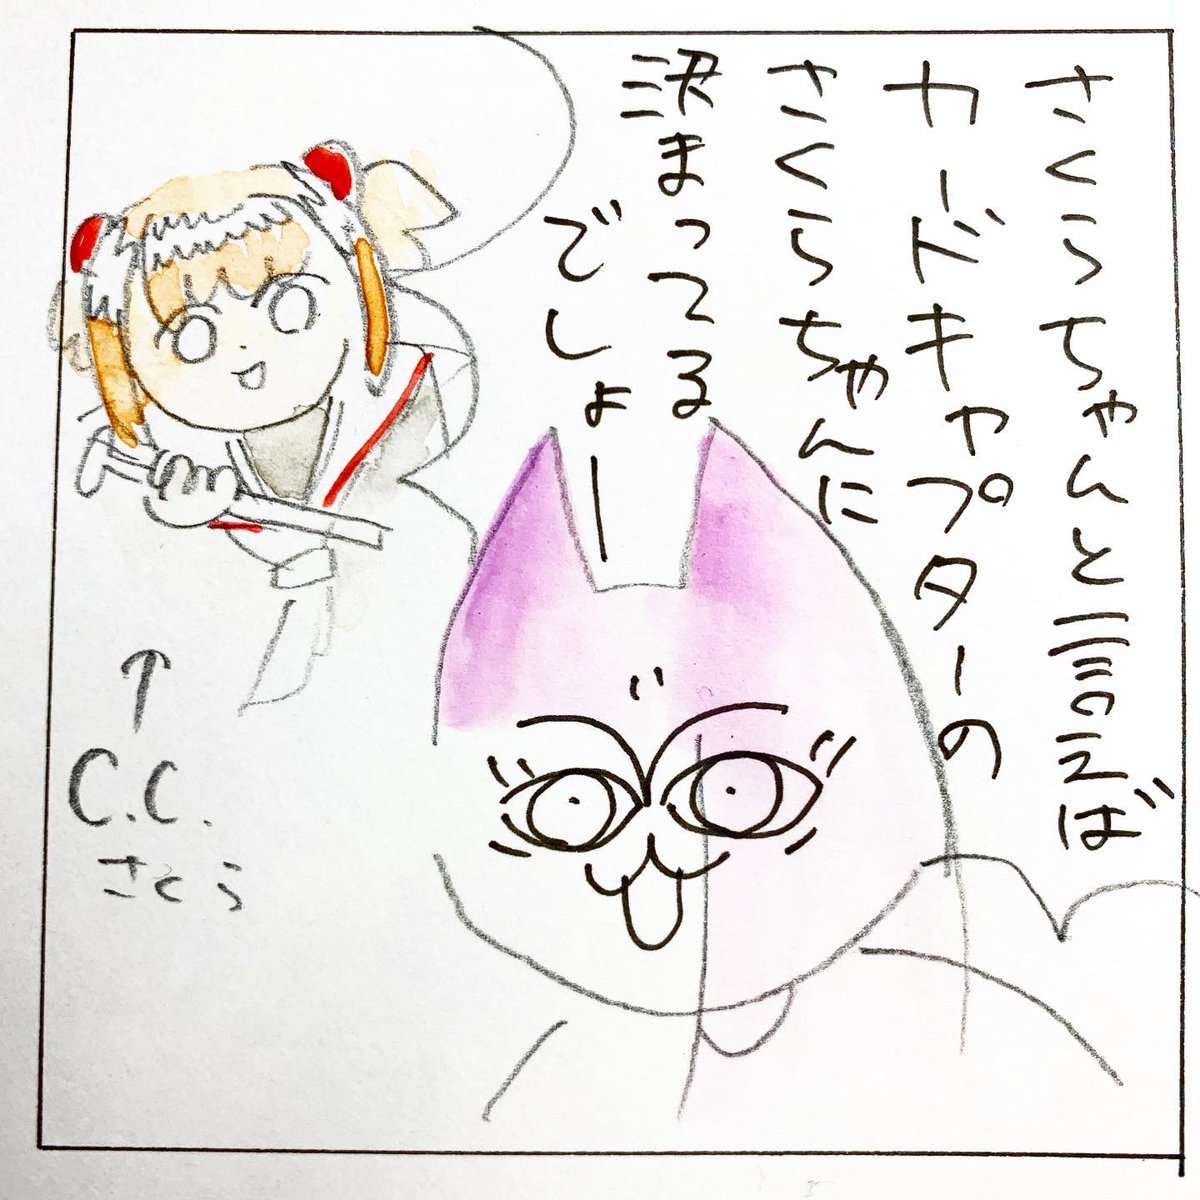 さくらちゃんと言えば
カードキャプターの
さくらちゃんに
決まってる
でしょー
↑
C.C.
さくら